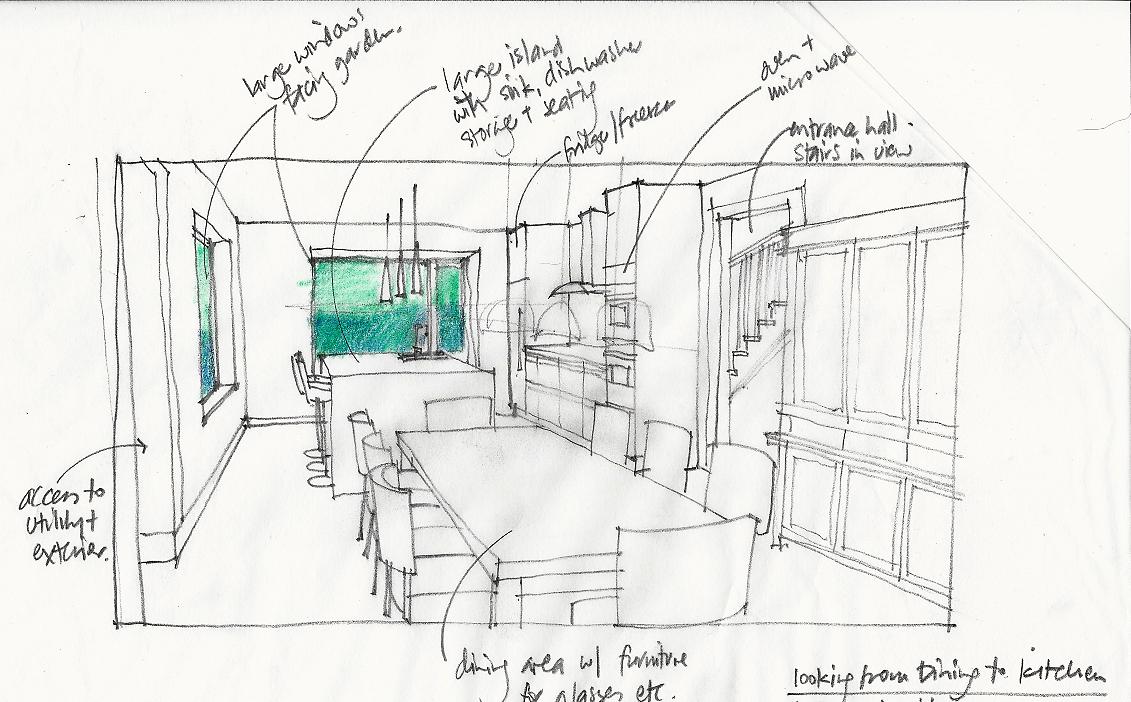 large windows
facing garden.
large island
with sink, dishwasher
storage + seating
fridge/freezer
oven +
microwave
entrance hall.
stairs in view
access to
utility +
exterior.
dining area w/ furniture
for glasses etc.
looking from Dining to kitchen